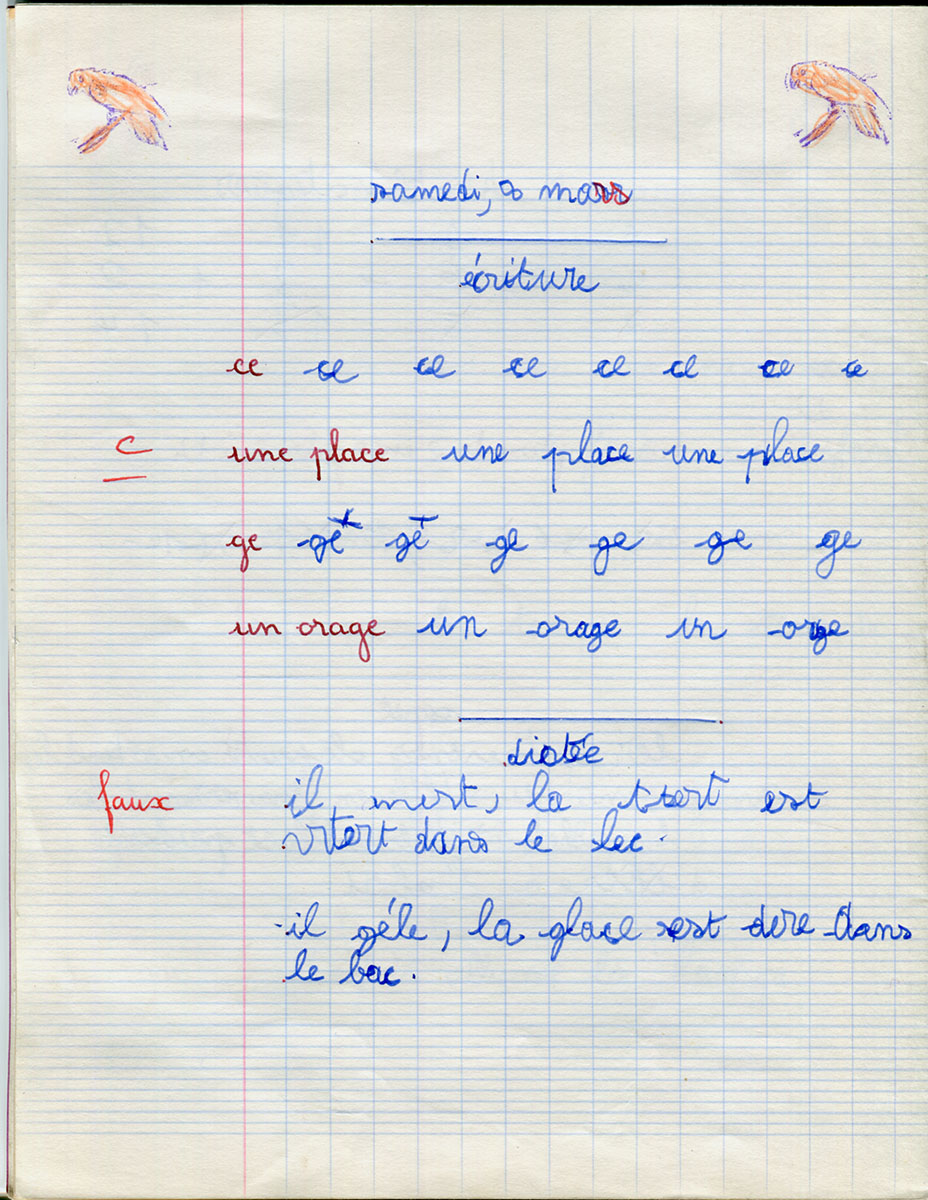 samedi, 8 mars
écriture
ce ce ce ce ce ce ce ce
C une place une place une place
ge ge ge ge ge ge ge
un orage un orage un orage
dictée
faux il mert, la est
dans le lec.
il géle, la glace est dere dans
le bac.